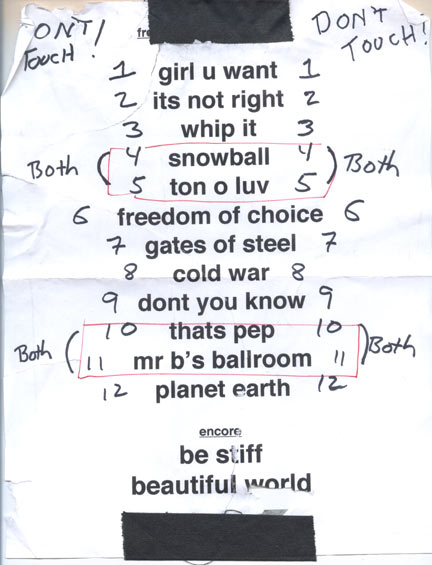 ONT! DON'T
TOUCH! TOUCH!
fre
1 girl u want 1
2 its not right 2
3 whip it 3
4 snowball 4
Both ( ) Both
5 ton o luv 5
6 freedom of choice 6
7 gates of steel 7
8 cold war 8
9 dont you know 9
10 thats pep 10
Both ( ) Both
11 mr b's ballroom 11
12 planet earth 12
encore
be stiff
beautiful world